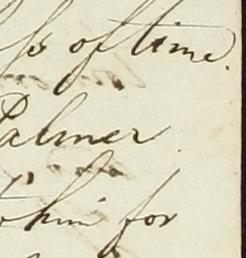 of time.
Palmer
him for